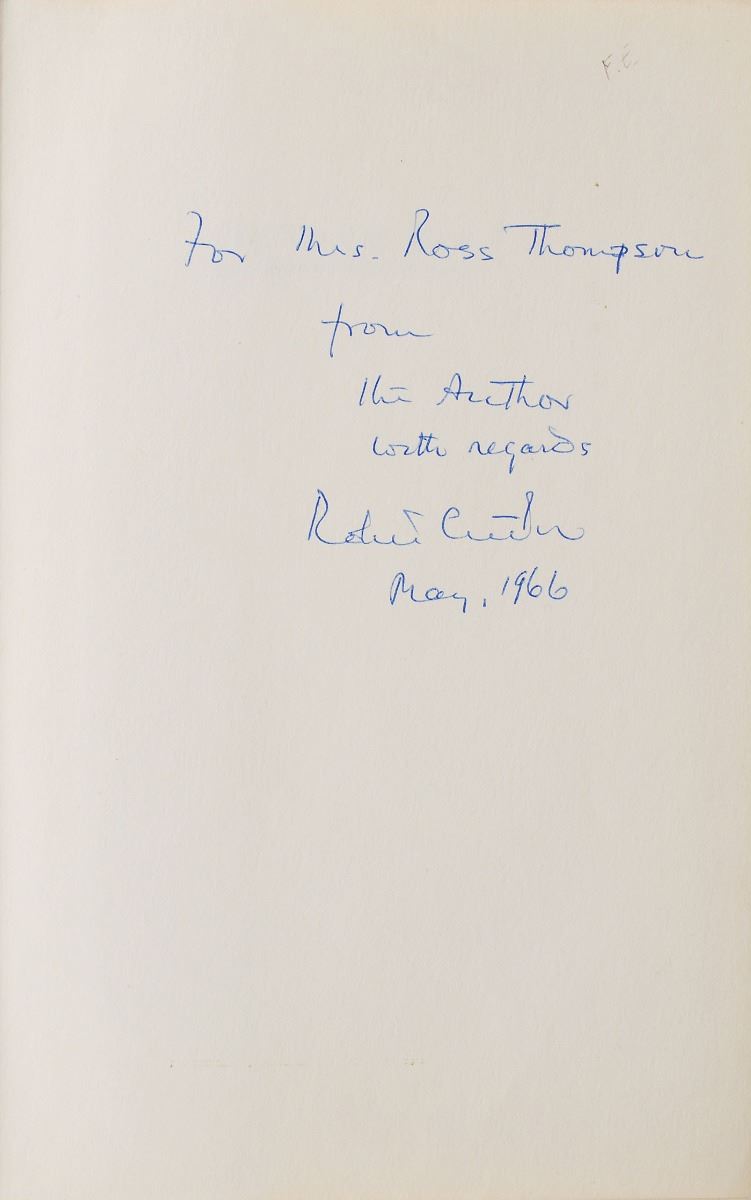 F.E.
For Mrs. Ross Thompson
from
the Author
with regards
Robert
May, 1966